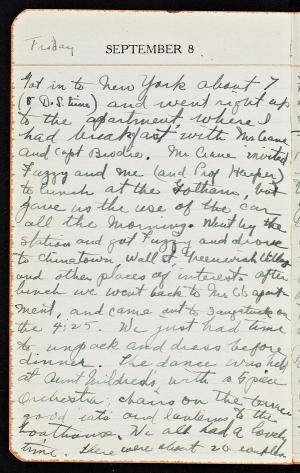 Friday
SEPTEMBER 8
Got in to New York about 7
(8 D.S. time) and went right up
to the apartment, where I
had breakfast with Mr. Crane
and Capt Brodie. Mr. Crane invited
Fuzzy and me (and Prof Harper)
to lunch at the Gotham, but
gave us the use of the car
all the morning. Went by the
station and got Fuzzy and drove
to Chinatown, Wall St, Greenwich Village
and other places of interest. After
lunch we went back to Mr C's apart-
ment, and came out to on
the 4:25. We just had time
to unpack and dress before
dinner. The dance was held
at Aunt Mildred's, with a 4 piece
orchestra; chairs on the terrace
good "eats" and lanterns to the
boathouse. We all had a lovely
time. There were about 20 couples